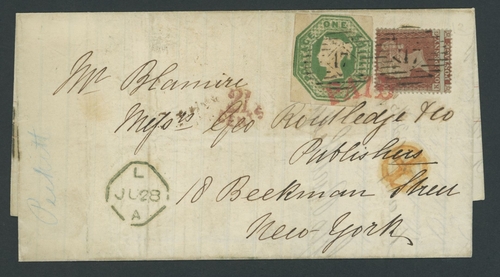 ONE
Mr Blamire
Messrs Geo Routledge & Co
Publishers
18 Beekman Street
New-York
Paid
L
JU 28
A
PAID
17